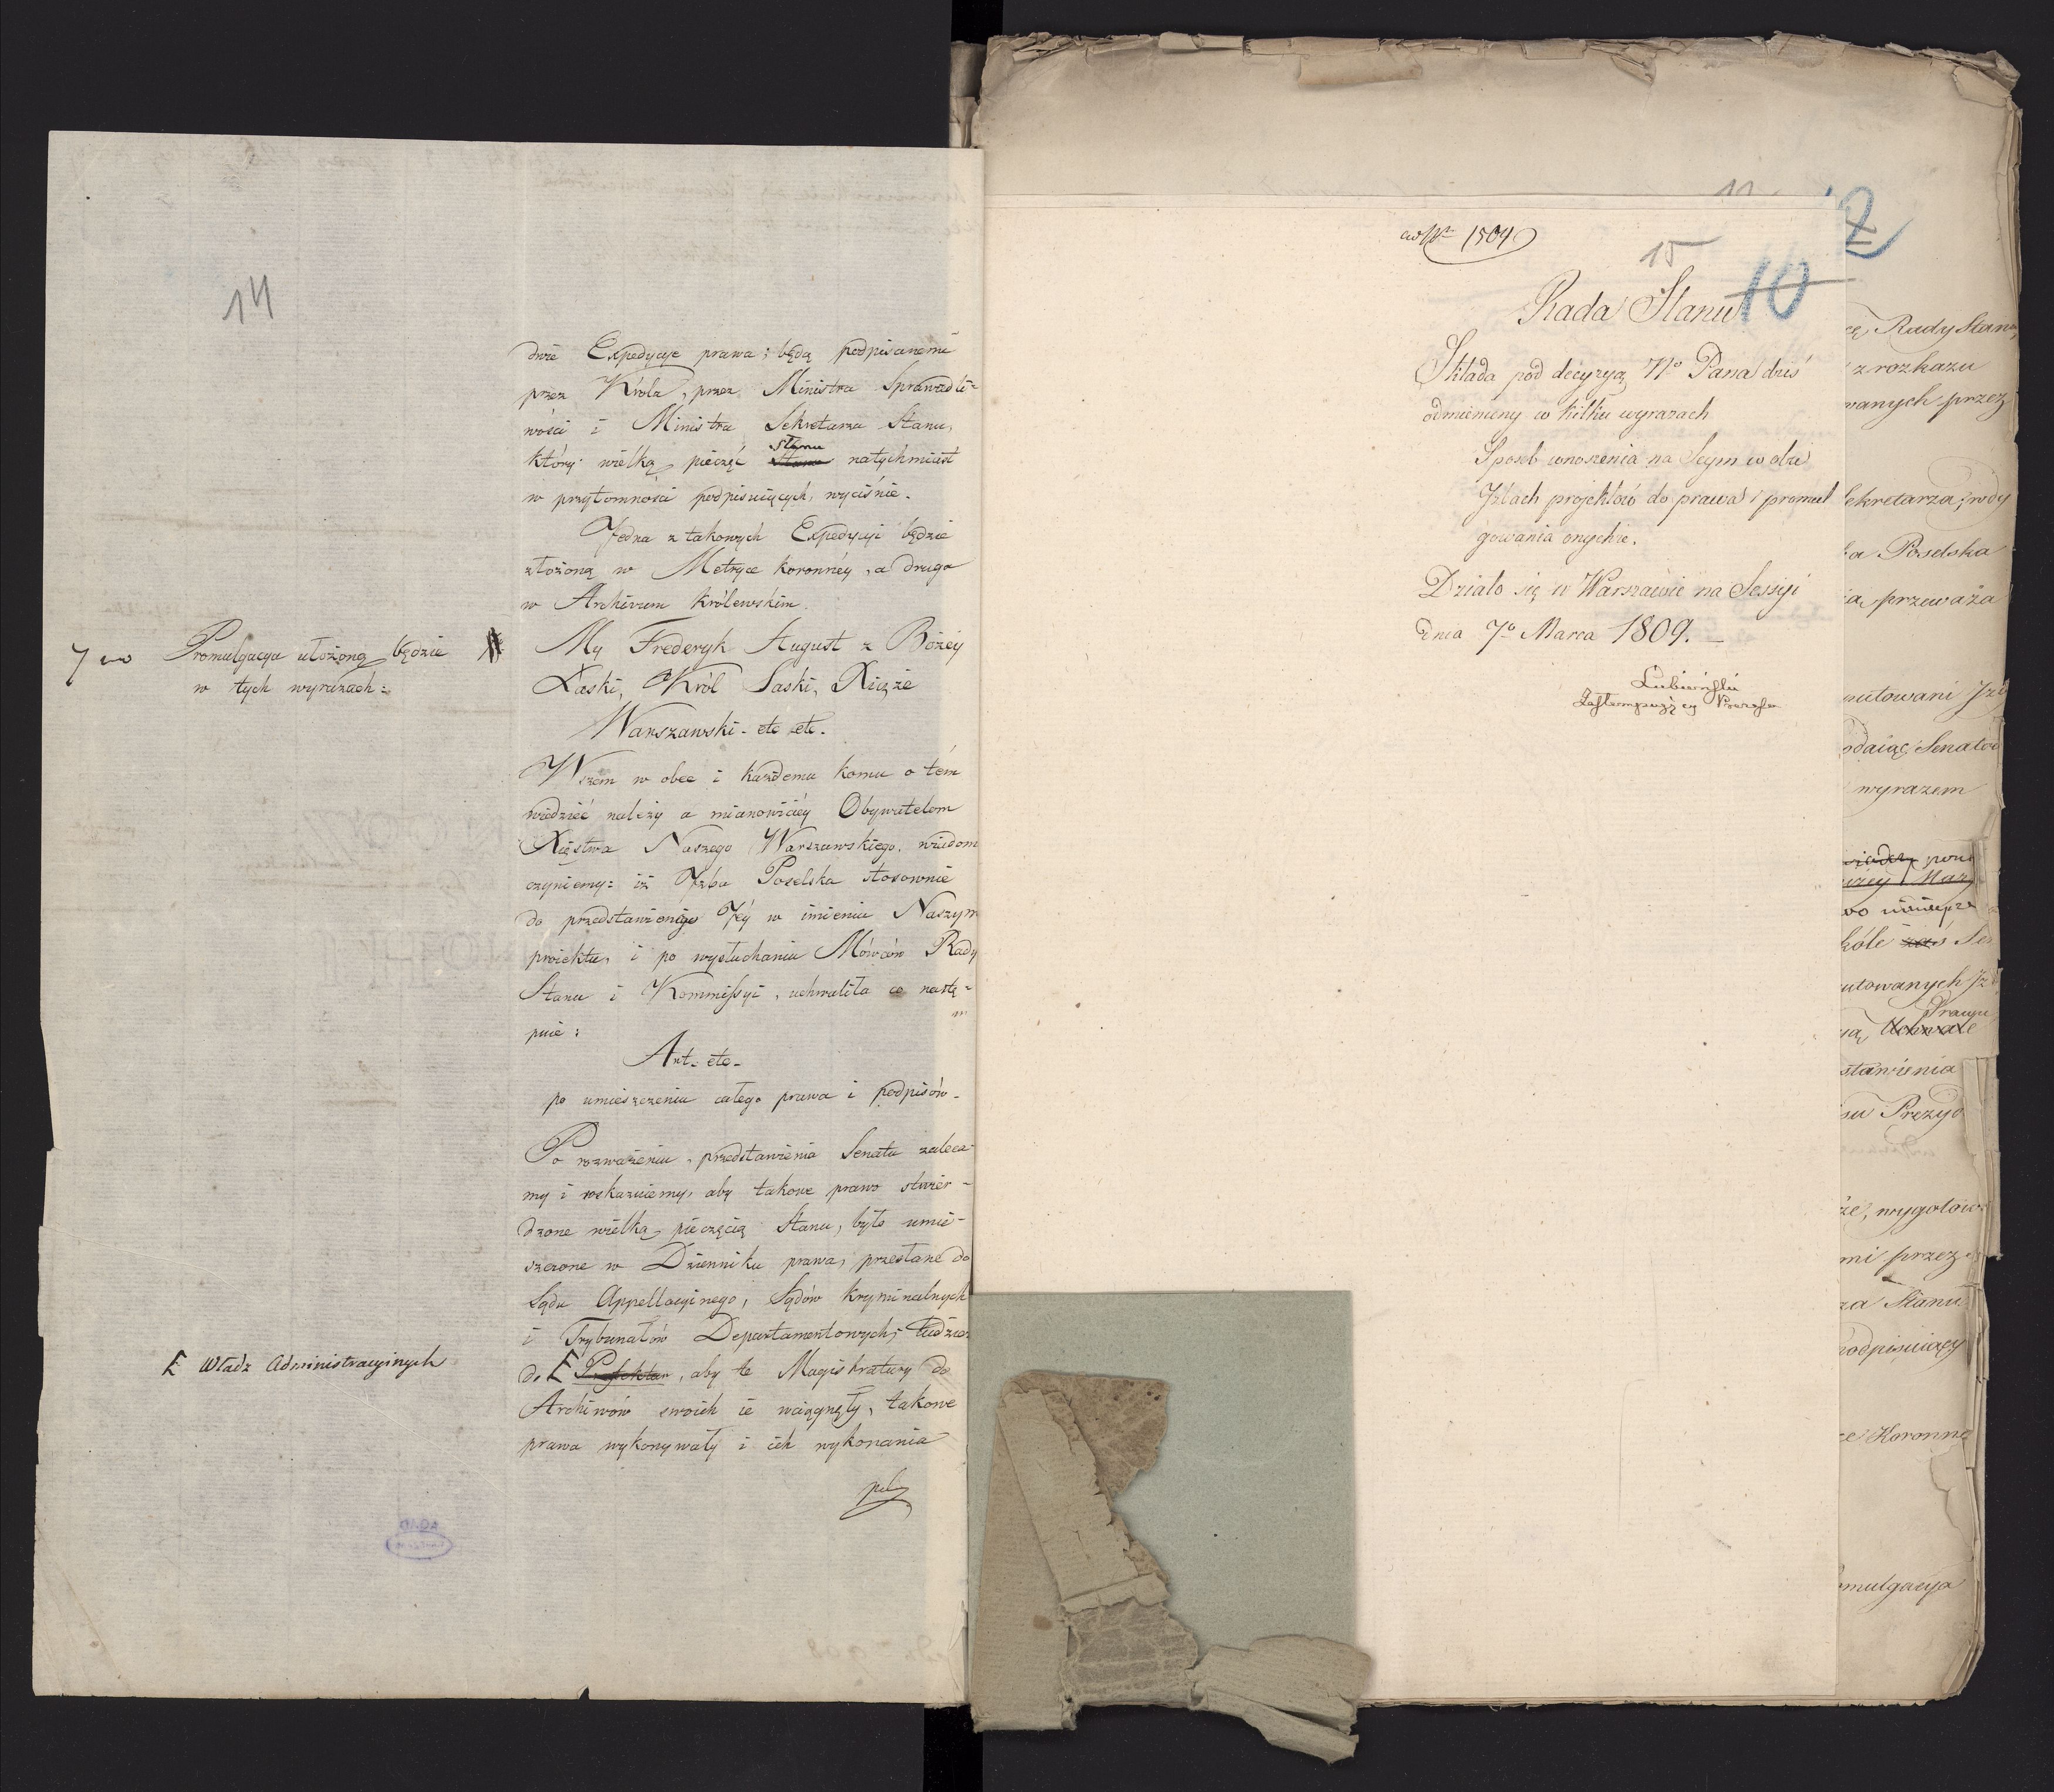 14
dwie Expedycye prawa; będą podpisanemi
przez Króla, przez Ministra Sprawiedli-
wości i Ministra Sekretarza Stanu,
Stanu
który wielką pieczęć Stanu natychmiast
w przytomności podpisuiących, wyciśnie.
Jedna z takowych Expedycyi będzie
złożoną w Metryce koronnéy, a druga
w Archivum Królewskim.
7mo Promulgacya ułożoną będzie
w tych wyrazach:
My Frederyk August z Bożéy
Łaski, Król Saski, Xiąże
Warszawski - etc etc.
Wszem w obec i każdemu komu o tém
wiedzieć należy a mianowiciéy Obywatelom
Xięstwa Naszego Warszawskiego, wiadom
czyniemy: iż Izba Poselska stosownie
do przedstawionégo Jéy w imieniu Naszym
proiektu, i po wysłuchaniu Mówców Rady
Stanu i Kommissyi, uchwaliła co nastę-
puie:
Art. etc.
po umieszczeniu całego prawa i podpisów.
Po rozważeniu, przedstawienia Senatu zaleca-
my i roskazuiemy, aby takowe prawo stwier-
dzone wielką pieczęcią Stanu, było umie-
szczone w Dzienniku prawa, przesłane do
Sądu Appellacyinego, Sądów kryminalnych
i Trybunałów Departamentowych, tudzież
Władz Administracyinych
do Prefektur, aby te Magistratury do
Archiwów swoich ie wciągnęły, takowe
prawa wykonywały i ich wykonania
pil
ad Nr 1504
15
10
Rada Stanu
Składa pod decyzyą No Pana dziś
odmieniony w kilku wyrazach
Sposób wnoszenia na Seym w obu
Izbach projektów do prawa i promul
gowania onychże.
Działo się w Warszawie na Sessyi
dnia 7o Marca 1809.
Lubieński
Zastempuiący Prezesa
11
2
Rady Stanu
z rozkazu
wanych przez
Sekretarza, rody
Poselska
przeważa
putowani
Senatow
wyrazem
utowanych
Prawu
Uchwale
stawienia
wygotow
mi przez
Stanu
podpisuiący
Koronne
omulgacya